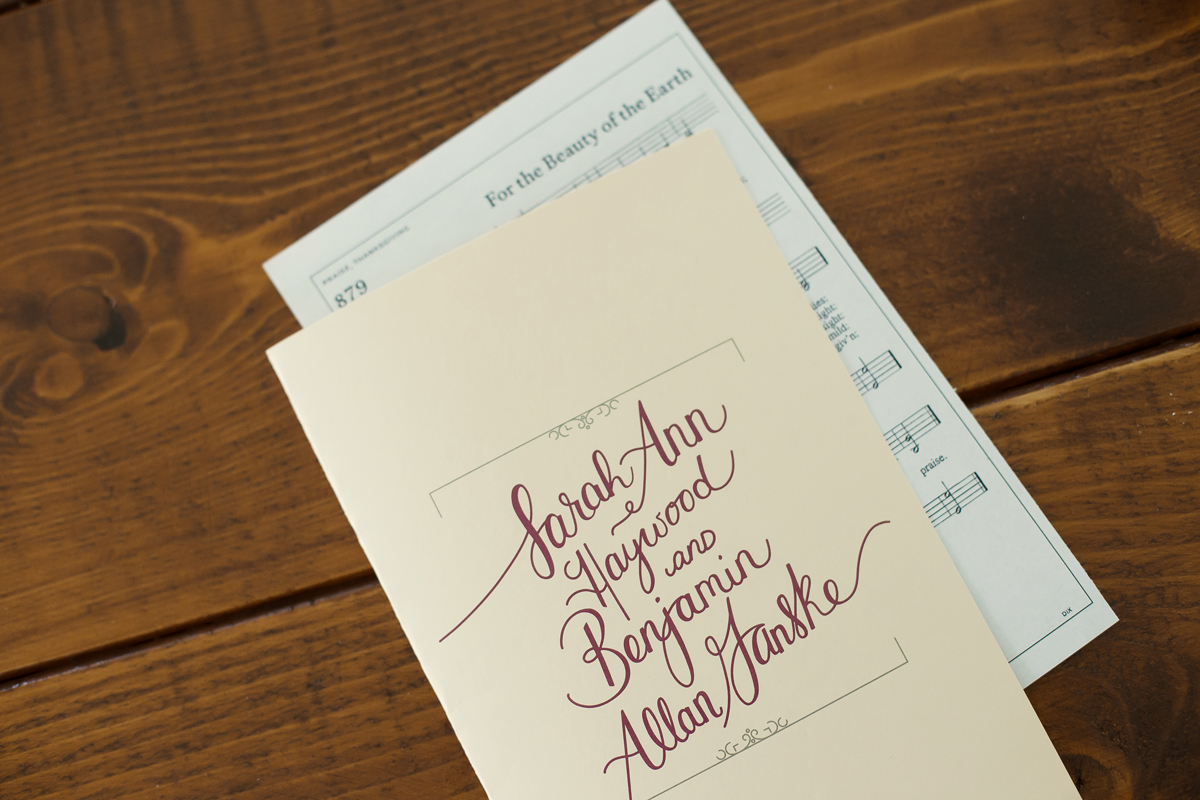 For the Beauty of the Earth
PRAISE, THANKSGIVING
879
ies:
ight:
light:
mild:
giv'n:
praise.
DIX
Sarah Ann
Haywood
and
Benjamin
Allan Janske